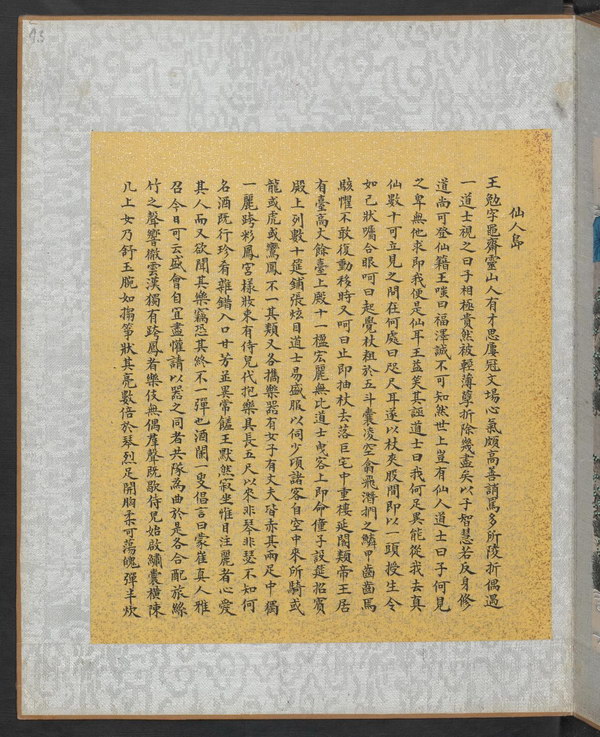 仙人島
王勉字黽齋靈山人有才思屢冠文場心氣頗高善誚罵多所陵折偶遇
一道士視之曰子相極貴然被輕薄孽折除幾盡矣以子智慧若反身修
道尚可登仙籍王嗤曰福澤誠不可知然世上豈有仙人道士曰子何見
之卑無他求即我便是仙耳王益笑其誣道士曰我何足異能從我去真
仙數十可立見之問在何處曰咫尺耳遂以杖夾股間即以一頭授生令
如己狀囑合眼呵曰起覺杖粗於五斗囊凌空翕飛潛捫之鱗甲齒齒焉
駭懼不敢復動移時又呵曰止即抽杖去落巨宅中重樓延閣類帝王居
有臺高丈餘臺上殿十一楹宏麗無比道士曳客上即命僮子設筵招賓
殿上列數十筵鋪張炫目道士易盛服以伺少頃諸客自空中來所騎或
龍或虎或鸞鳳不一其類又各攜樂器有女子有丈夫皆赤其兩足中獨
一麗跨彩鳳宮樣妝束有侍兒代抱樂具長五尺以來非琴非瑟不知何
名酒既行珍肴雜錯入口甘芳並異常饈王默然寂坐惟目注麗者心愛
其人而又欲聞其樂竊恐其終不一彈也酒闌一叟倡言曰蒙崔真人雅
召今日可云盛會自宜盡懽請以器之同者共隊為曲於是各合配旅絲
竹之聲響徹雲漢獨有跨鳳者樂伎無偶羣聲既歇侍兒始啟繡囊橫陳
几上女乃舒玉腕如搊箏狀其亮數倍於琴烈足開胸柔可蕩魄彈半炊